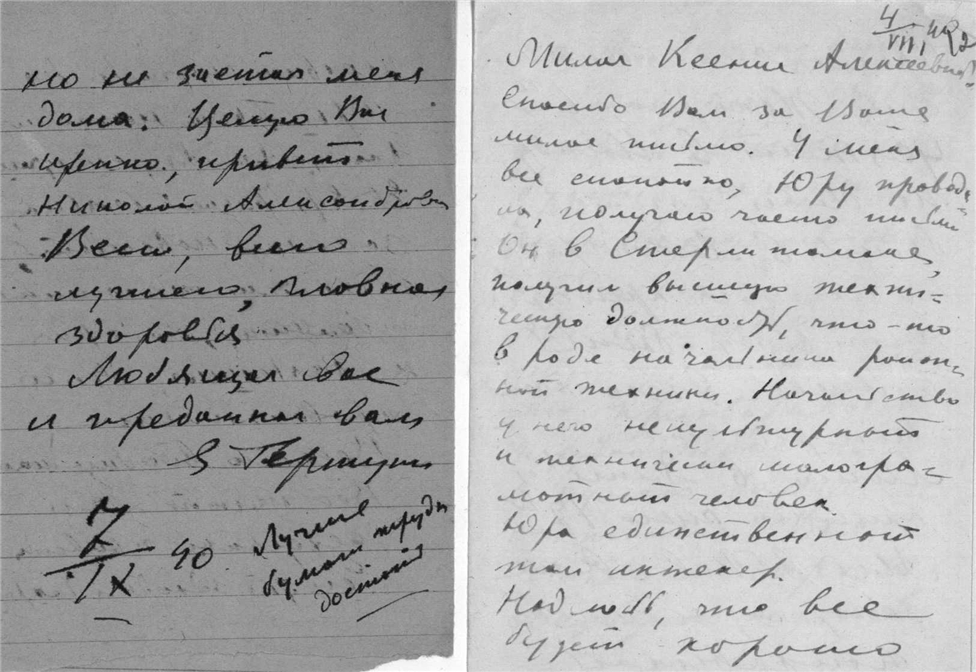 но не застал меня
дома. Целую Вас
крепко, привет
Николай Александрович
Всего, всего
лучшего, главное
здоровья
Любящая вас
и преданная вам
Е Герцун
7/IX 40
Лучше
бумаги трудно
достать
4/VIII 40
Милая Ксения Алексеевна
Спасибо Вам за Ваше
милое письмо. У меня
все спокойно, Юру провод
ла, получаю часто письма
Он в Стерлитамаке,
получил высшую техни=
ческую должность, что-то
в роде начальника район=
ной техники. Начальство
у него некультурный
и технически малогра=
мотный человек.
Юра единственный
там инженер.
Надеюсь, что все
будет хорошо